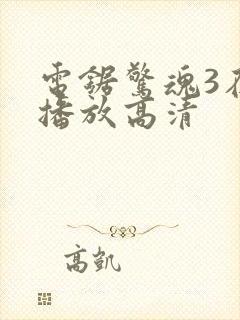 電鋸驚魂3在
播放高清
高凱